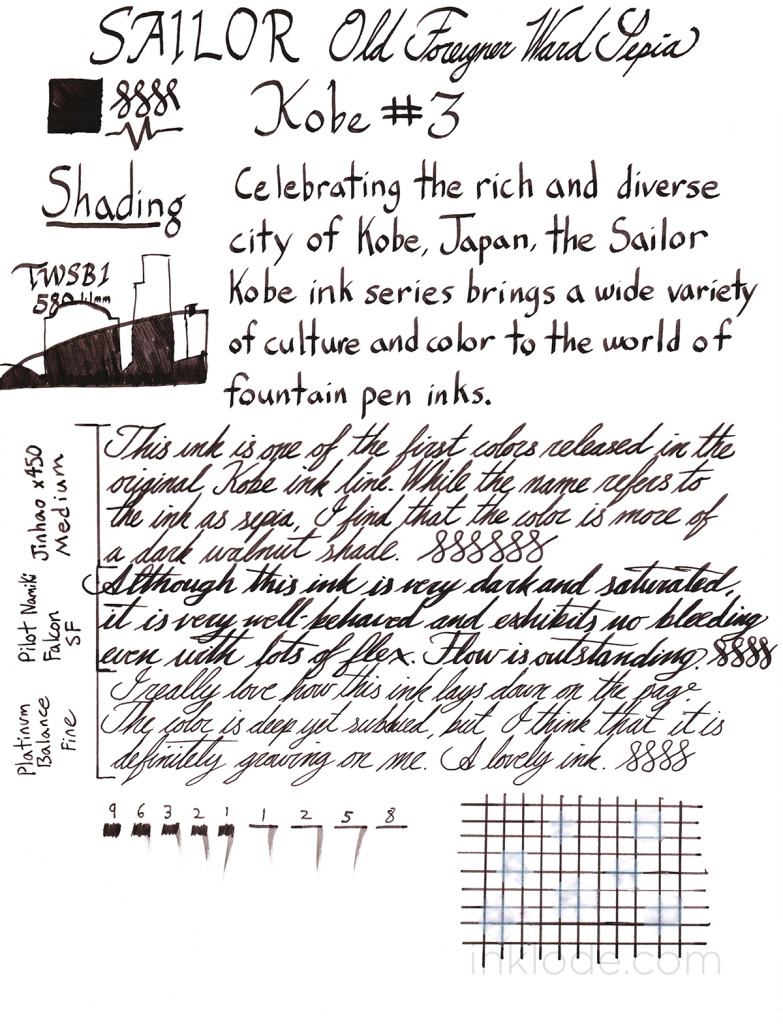 SAILOR Old Foreigner Ward Sepia
Kobe #3
Shading
Celebrating the rich and diverse
city of Kobe, Japan, the Sailor
Kobe ink series brings a wide variety
of culture and color to the world of
fountain pen inks.
TWSBI
580 1.1mm
Jinhao x450
Medium
This ink is one of the first colors released in the
original Kobe ink line. While the name refers to
the ink as sepia, I find that the color is more of
a dark walnut shade.
Pilot Namiki
Falcon
SF
Although this ink is very dark and saturated,
it is very well-behaved and exhibits no bleeding
even with lots of flex. Flow is outstanding.
Platinum
Balance
Fine
I really love how this ink lays down on the page.
The color is deep yet subdued, but I think that it is
definitely growing on me. A lovely ink.
9 6 3 2 1 1 2 5 8
inklode.com